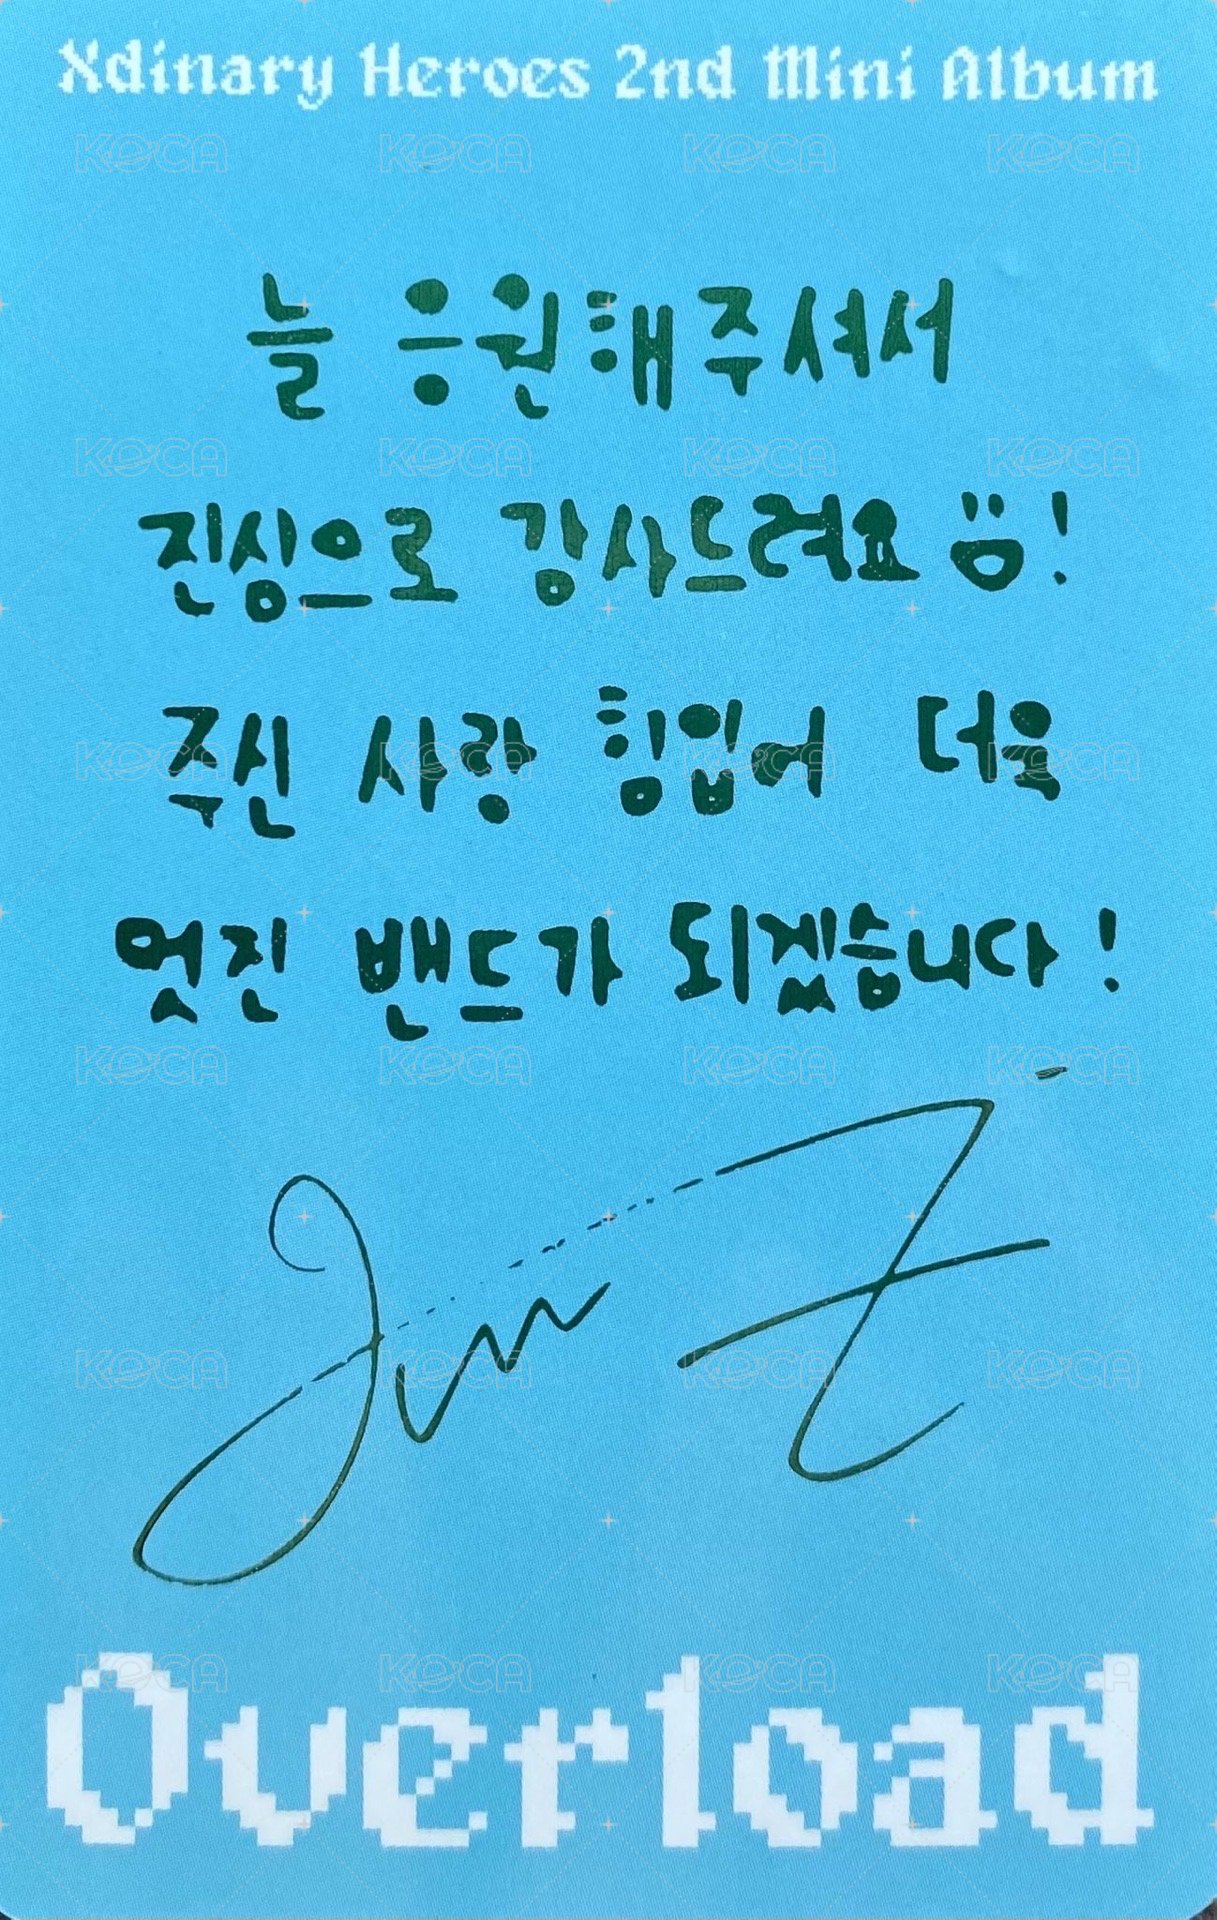 Xdinary Heroes 2nd Mini Album
늘 응원해주셔서
진심으로 감사드려요!
주신 사랑 힘입어 더욱
멋진 밴드가 되겠습니다!
Overload
KOCA